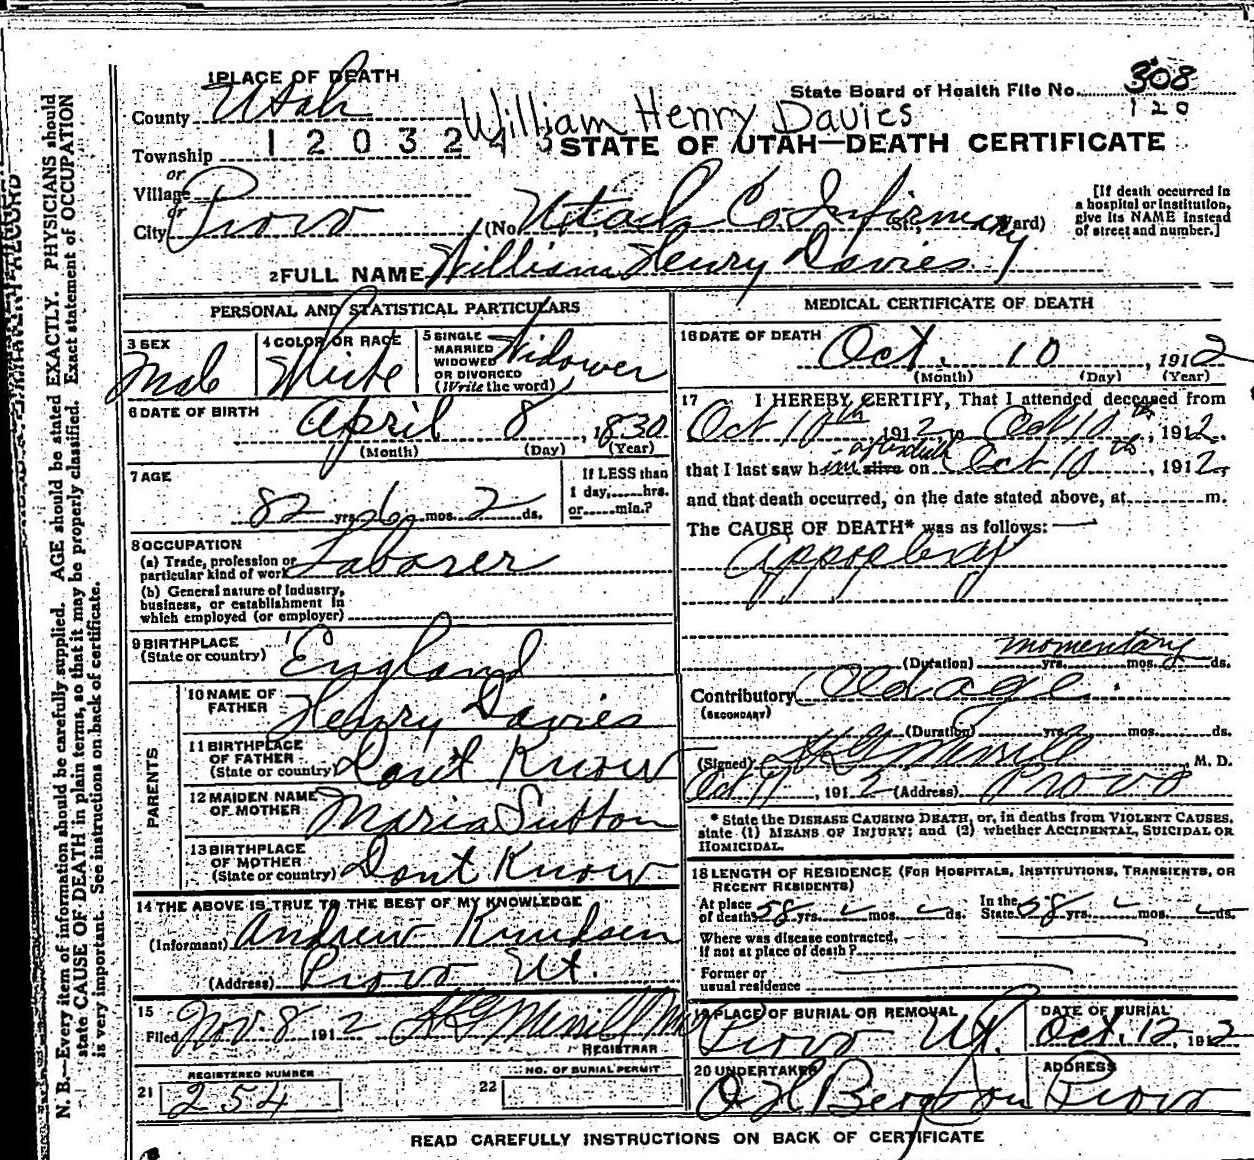 N. B.—Every item of information should be carefully supplied. AGE should be stated EXACTLY. PHYSICIANS should
state CAUSE OF DEATH in plain terms, so that it may be properly classified. Exact statement of OCCUPATION
is very important. See instructions on back of certificate.
1 PLACE OF DEATH
County Utah
State Board of Health File No. 308
120
William Henry Davies
Township 1203243
STATE OF UTAH—DEATH CERTIFICATE
or
Village
or
City Provo (No. Utah Co. Infirmary St., Ward)
[If death occurred in
a hospital or institution,
give its NAME instead
of street and number.]
2 FULL NAME William Henry Davies
PERSONAL AND STATISTICAL PARTICULARS
3 SEX Male
4 COLOR OR RACE White
5 SINGLE
MARRIED
WIDOWED
OR DIVORCED
(Write the word) Widower
6 DATE OF BIRTH
April 8, 1830
(Month) (Day) (Year)
7 AGE
82 yrs. 6 mos. 2 ds.
If LESS than
1 day, hrs.
or min.?
8 OCCUPATION
(a) Trade, profession or
particular kind of work Laborer
(b) General nature of industry,
business, or establishment in
which employed (or employer)
9 BIRTHPLACE
(State or country) England
PARENTS
10 NAME OF
FATHER Henry Davies
11 BIRTHPLACE
OF FATHER
(State or country) Dont Know
12 MAIDEN NAME
OF MOTHER Maria Sutton
13 BIRTHPLACE
OF MOTHER
(State or country) Dont Know
14 THE ABOVE IS TRUE TO THE BEST OF MY KNOWLEDGE
(Informant) Andrew Knudsen
(Address) Provo Ut.
15
Filed Nov. 8 1912 Merrill
REGISTRAR
REGISTERED NUMBER
21 254
NO. OF BURIAL PERMIT
22
MEDICAL CERTIFICATE OF DEATH
16 DATE OF DEATH
Oct. 10, 1912
(Month) (Day) (Year)
17 I HEREBY CERTIFY, That I attended deceased from
Oct 10th, 1912 to Oct 10th, 1912.
after death
that I last saw him alive on Oct 10th, 1912,
and that death occurred, on the date stated above, at m.
The CAUSE OF DEATH* was as follows:
Appoplexy
(Duration) momentary yrs. mos. ds.
Contributory Old age.
(SECONDARY)
(Duration) yrs. mos. ds.
(Signed) Merrill, M. D.
Oct 11, 1912 (Address) Provo
* State the DISEASE CAUSING DEATH, or, in deaths from VIOLENT CAUSES,
state (1) MEANS OF INJURY; and (2) whether ACCIDENTAL, SUICIDAL OR
HOMICIDAL.
18 LENGTH OF RESIDENCE (FOR HOSPITALS, INSTITUTIONS, TRANSIENTS, OR
RECENT RESIDENTS)
At place
of death 58 yrs. mos. ds.
In the
State 58 yrs. mos. ds.
Where was disease contracted,
if not at place of death?
Former or
usual residence
19 PLACE OF BURIAL OR REMOVAL
Provo Ut.
DATE OF BURIAL
Oct. 12, 1912
20 UNDERTAKER
ADDRESS
Provo
READ CAREFULLY INSTRUCTIONS ON BACK OF CERTIFICATE